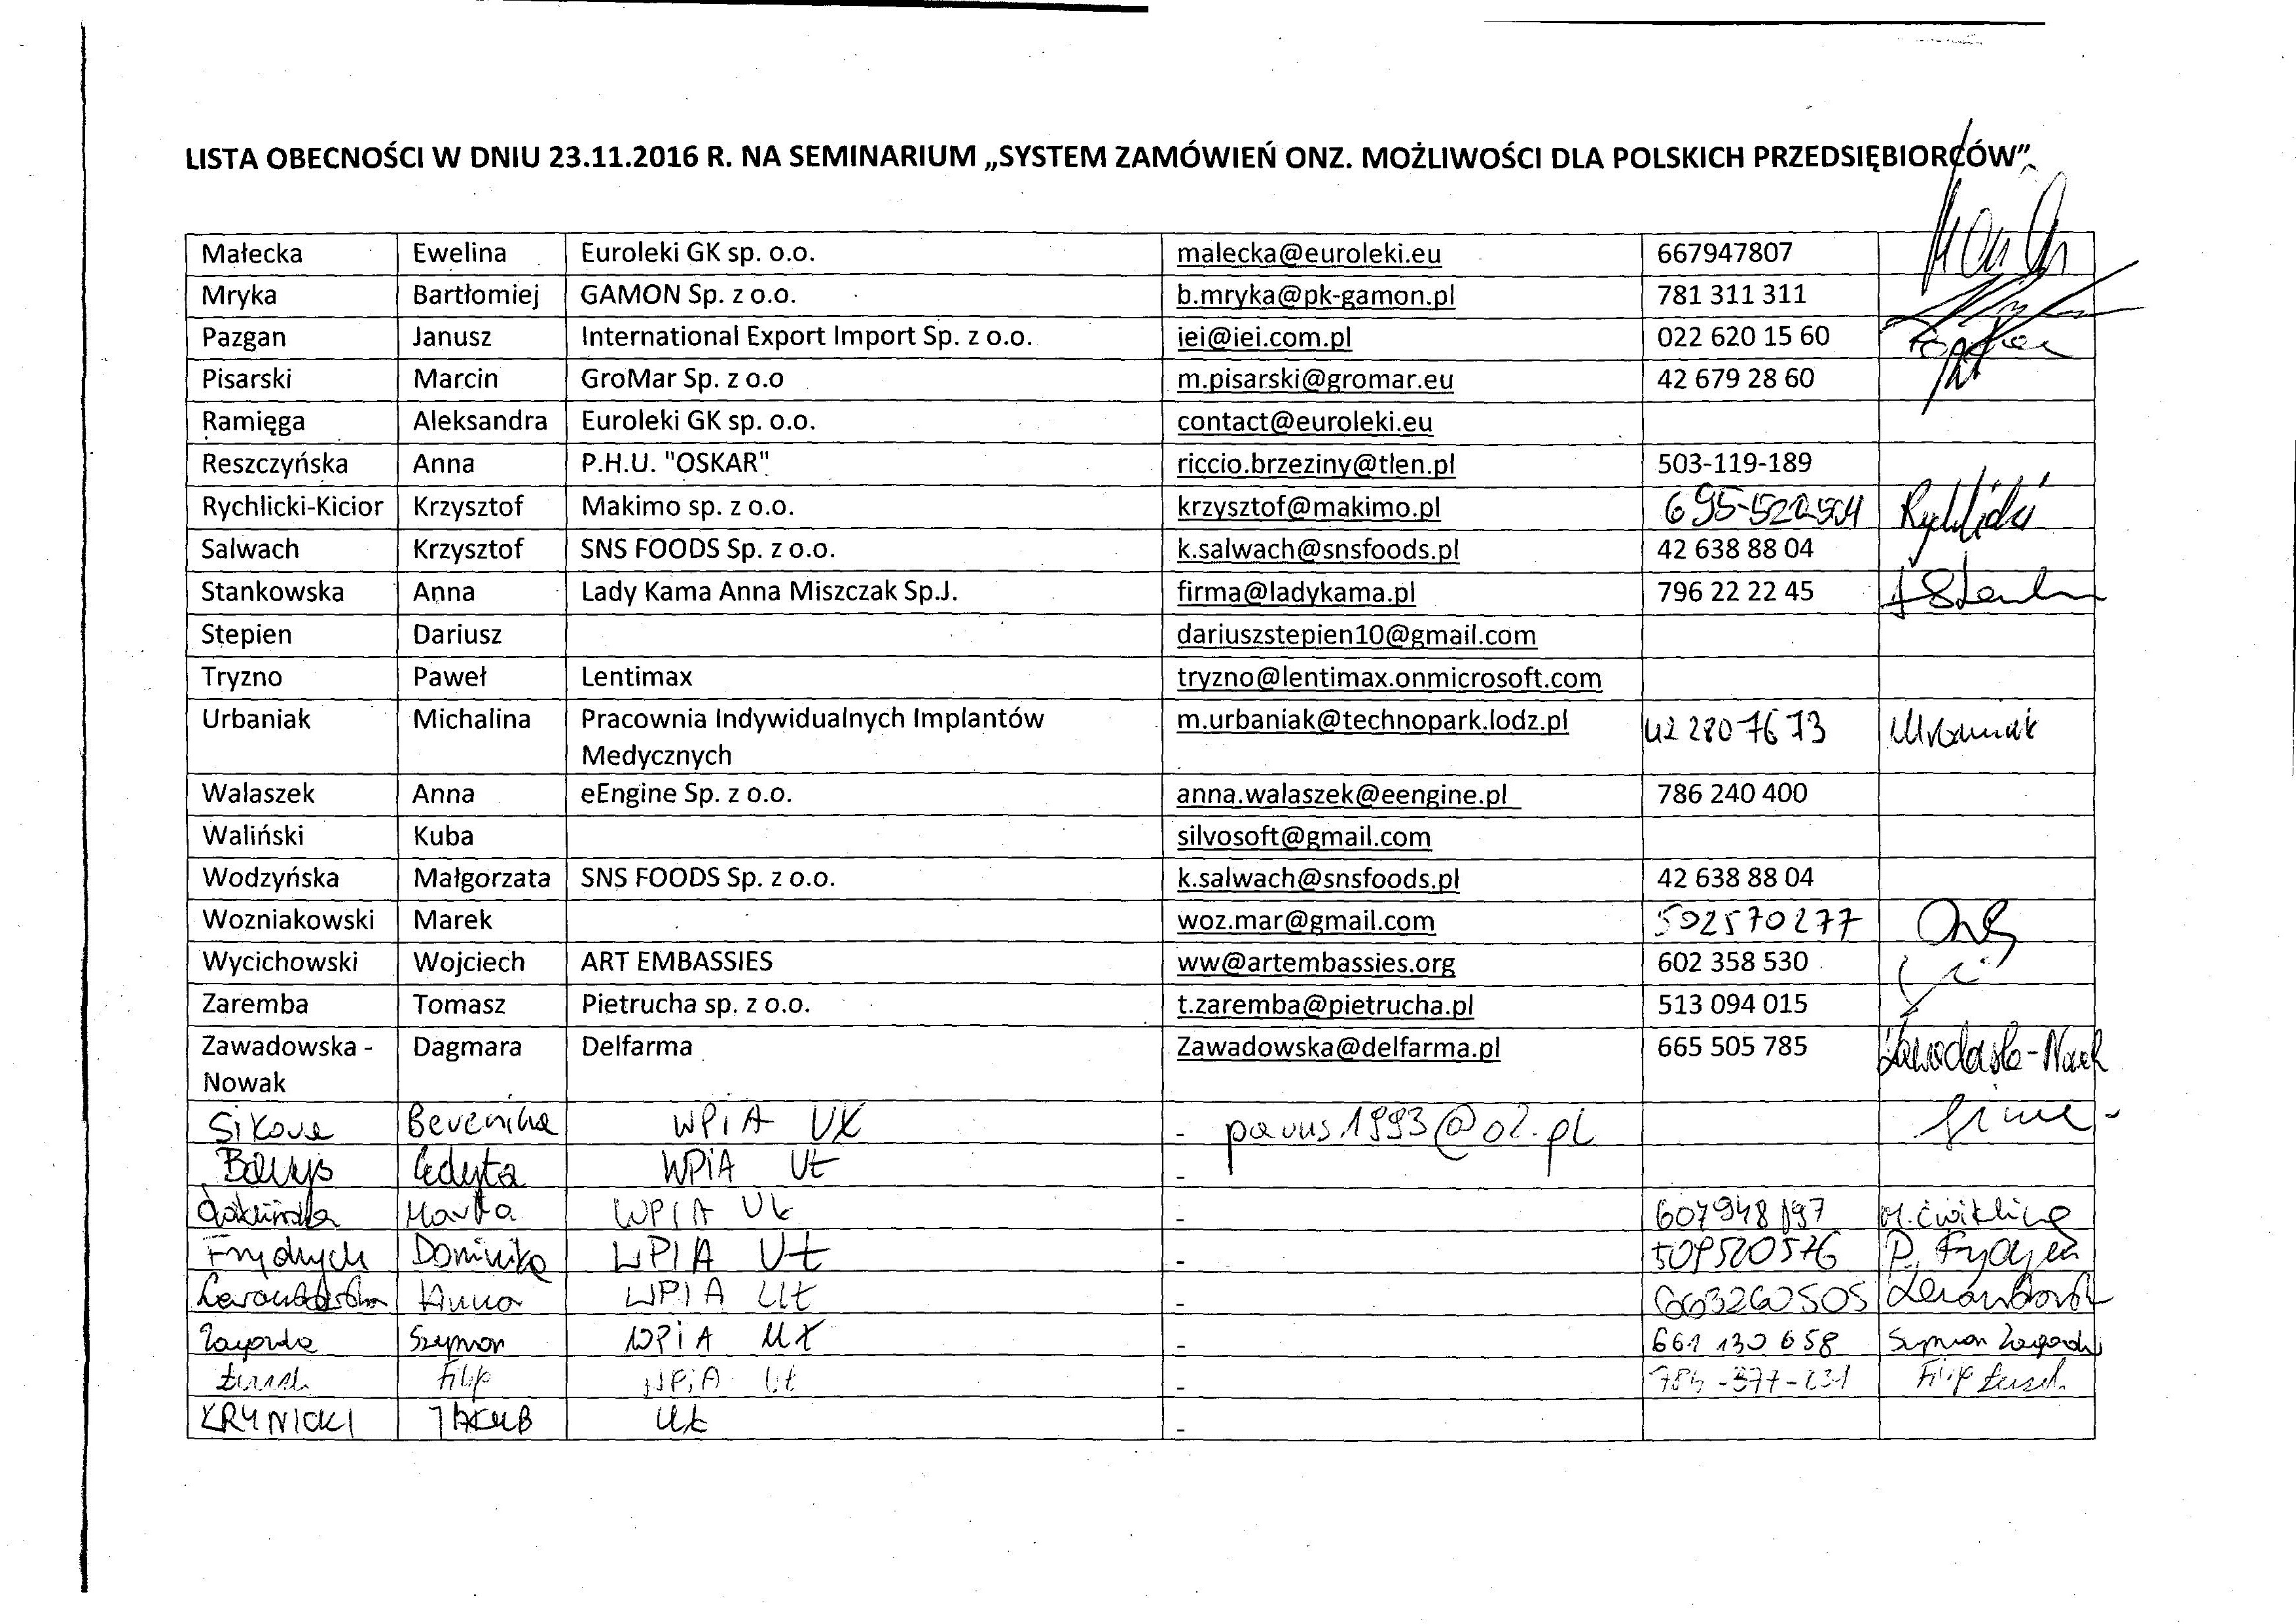 LISTA OBECNOŚCI W DNIU 23.11.2016 R. NA SEMINARIUM „SYSTEM ZAMÓWIEŃ ONZ. MOŻLIWOŚCI DLA POLSKICH PRZEDSIĘBIORCÓW”
Małecka Ewelina Euroleki GK sp. o.o. malecka@euroleki.eu 667947807
Mryka Bartłomiej GAMON Sp. z o.o. b.mryka@pk-gamon.pl 781 311 311
Pazgan Janusz International Export Import Sp. z o.o. iei@iei.com.pl 022 620 15 60
Pisarski Marcin GroMar Sp. z o.o m.pisarski@gromar.eu 42 679 28 60
Ramięga Aleksandra Euroleki GK sp. o.o. contact@euroleki.eu
Reszczyńska Anna P.H.U. "OSKAR" riccio.brzeziny@tlen.pl 503-119-189
Rychlicki-Kicior Krzysztof Makimo sp. z o.o. krzysztof@makimo.pl Rychlicki
Salwach Krzysztof SNS FOODS Sp. z o.o. k.salwach@snsfoods.pl 42 638 88 04
Stankowska Anna Lady Kama Anna Miszczak Sp.J. firma@ladykama.pl 796 22 22 45
Stępien Dariusz dariuszstepien10@gmail.com
Tryzno Paweł Lentimax tryzno@lentimax.onmicrosoft.com
Urbaniak Michalina Pracownia Indywidualnych Implantów m.urbaniak@technopark.lodz.pl 42 280 76 73 Urbaniak
Medycznych
Walaszek Anna eEngine Sp. z o.o. anna.walaszek@eengine.pl 786 240 400
Waliński Kuba silvosoft@gmail.com
Wodzyńska Małgorzata SNS FOODS Sp. z o.o. k.salwach@snsfoods.pl 42 638 88 04
Wozniakowski Marek woz.mar@gmail.com 502570277
Wycichowski Wojciech ART EMBASSIES ww@artembassies.org 602 358 530
Zaremba Tomasz Pietrucha sp. z o.o. t.zaremba@pietrucha.pl 513 094 015
Zawadowska - Dagmara Delfarma Zawadowska@delfarma.pl 665 505 785 Zawadowska-Nowak
Nowak
Sikora Berenika WPiA UŁ - parus1993@o2.pl
Edyta WPiA UŁ -
Marta WPIA UŁ - 607948197 M. Ćwiklińska
Frydrych Dominika WPIA UŁ - 509520576
Anna WPIA UŁ - 663260505
Zagorda Szymon WPiA UŁ - 661 130 658 Szymon Zagorda
Filip WPiA UŁ - Filip
KRYNICKI JAKUB UŁ -